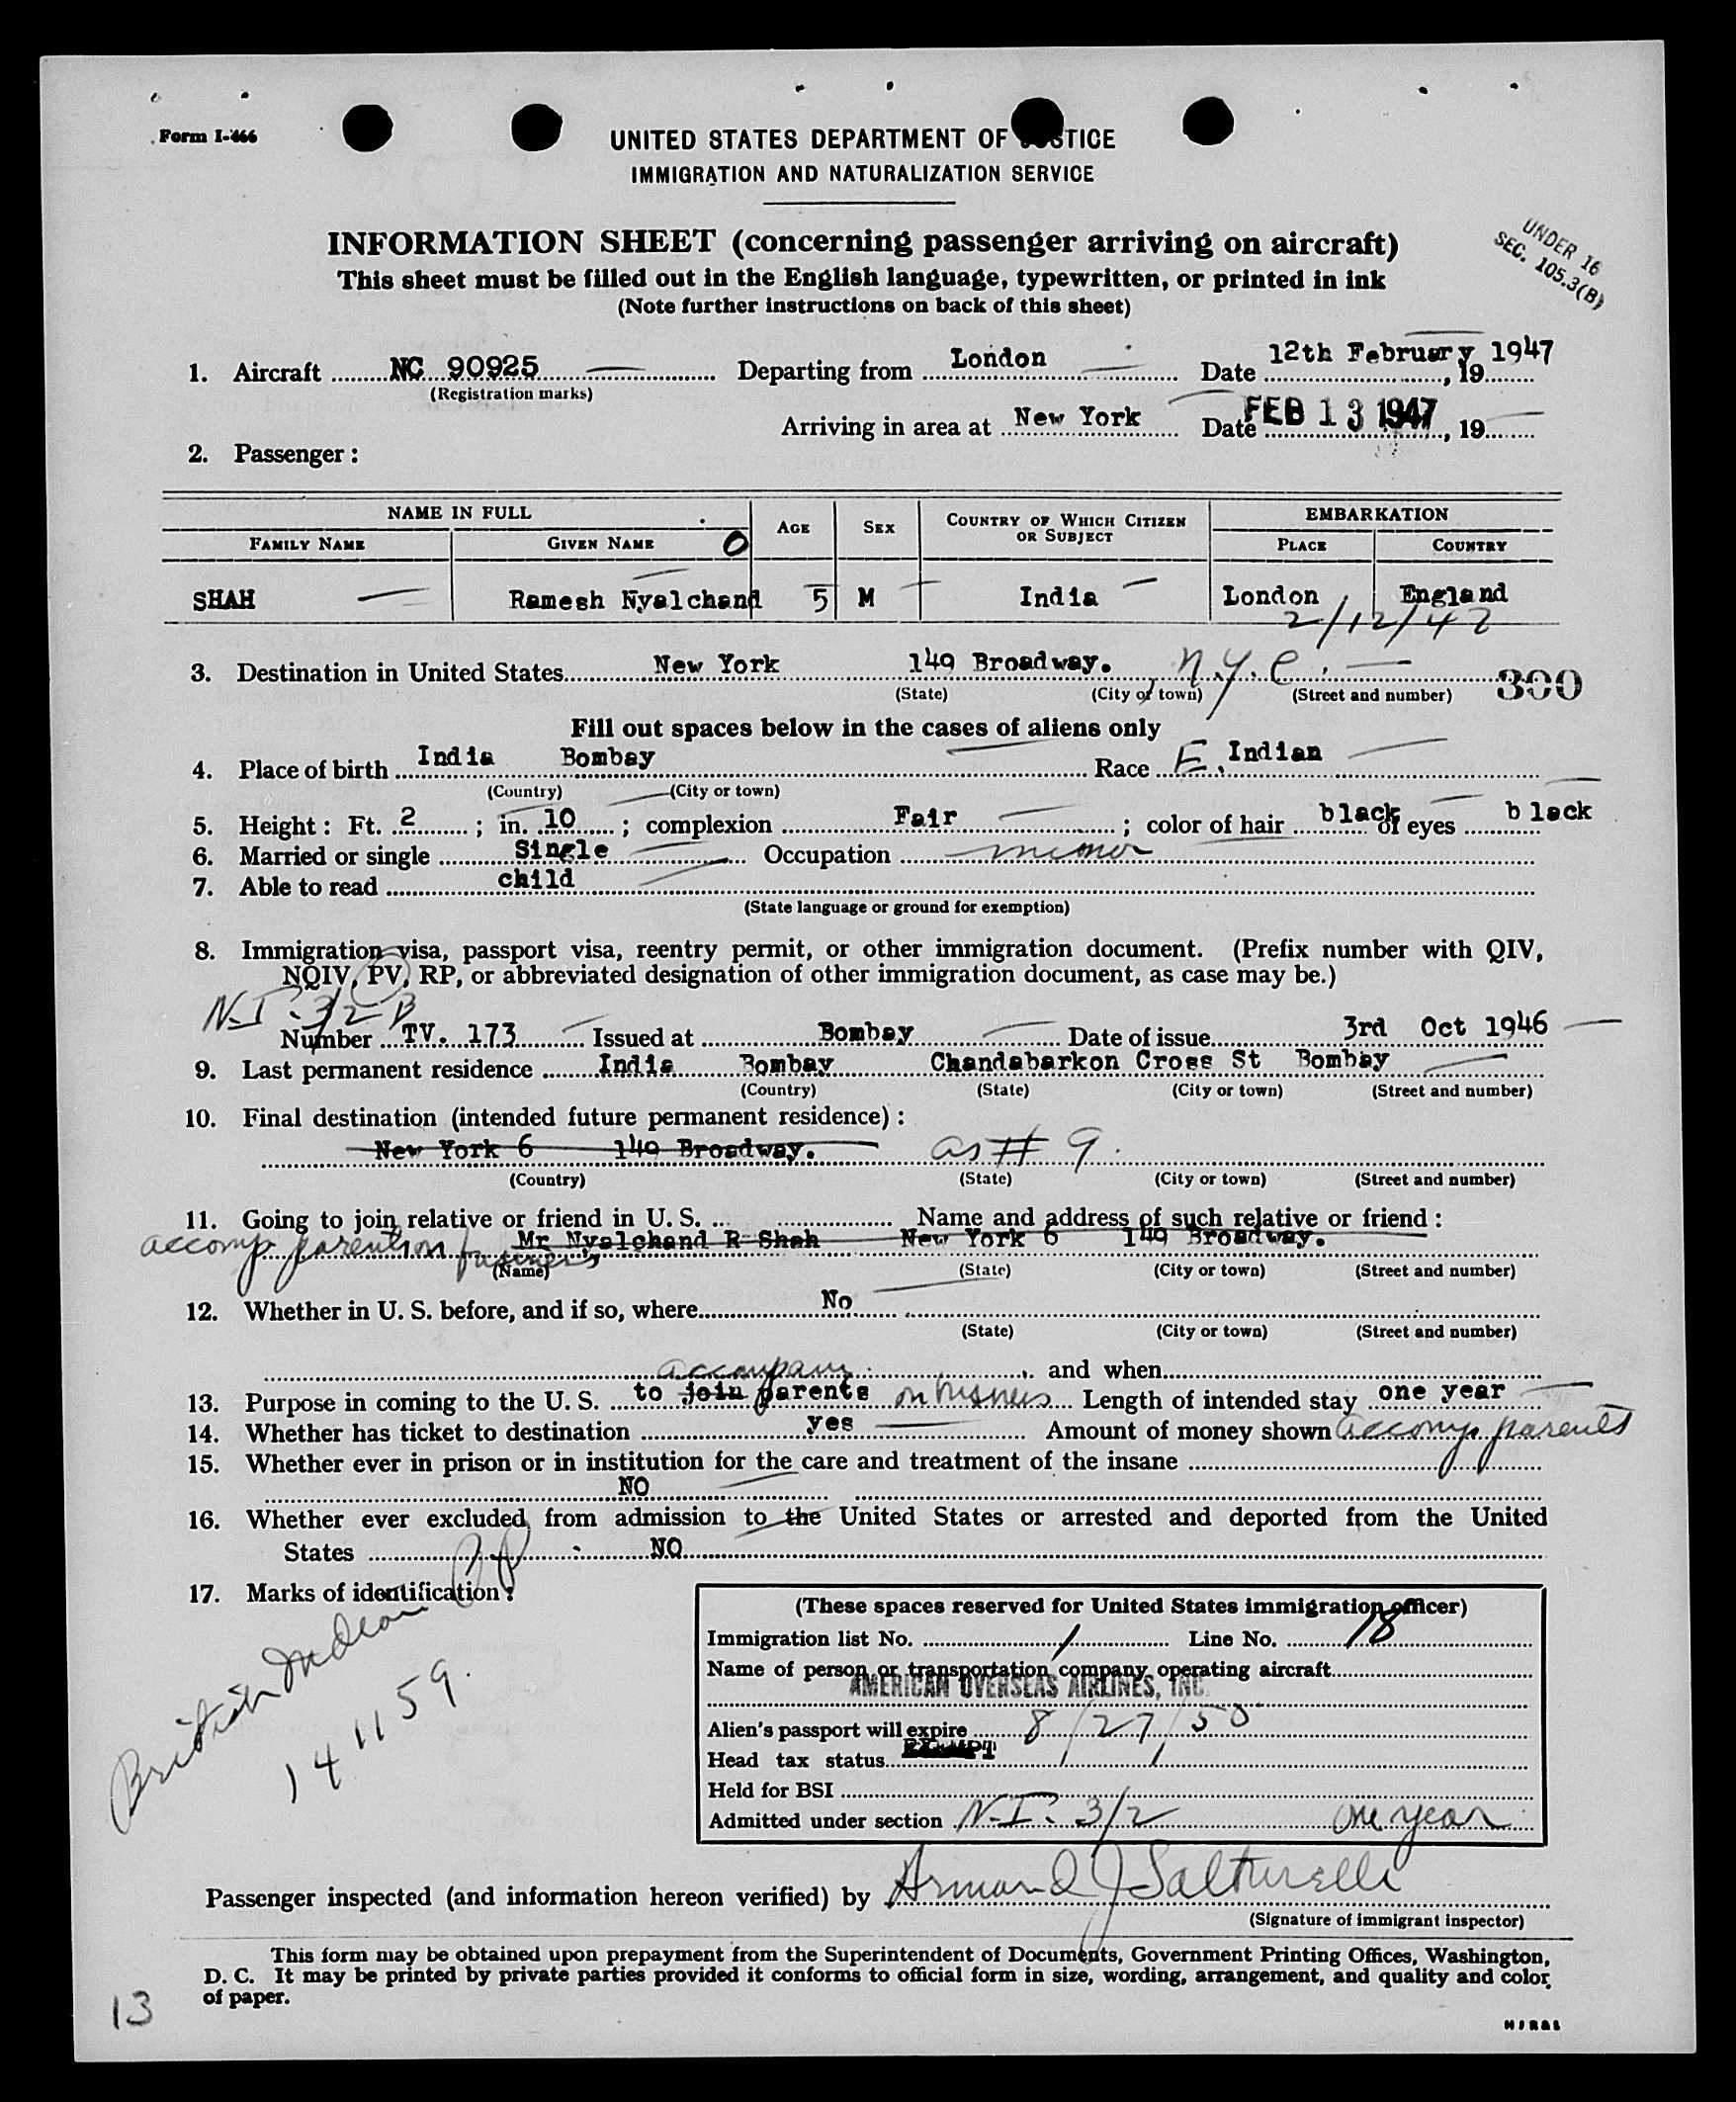 Form I-466
UNITED STATES DEPARTMENT OF JUSTICE
IMMIGRATION AND NATURALIZATION SERVICE
INFORMATION SHEET (concerning passenger arriving on aircraft)
UNDER 16
SEC. 105.3(B)
This sheet must be filled out in the English language, typewritten, or printed in ink
(Note further instructions on back of this sheet)
1. Aircraft NC 90925 Departing from London Date 12th February 1947, 19
(Registration marks)
Arriving in area at New York Date FEB 13 1947, 19
2. Passenger:
NAME IN FULL AGE SEX COUNTRY OF WHICH CITIZEN OR SUBJECT EMBARKATION
FAMILY NAME GIVEN NAME O PLACE COUNTRY
SHAH Ramesh Nyalchand 5 M India London England
2/12/47
3. Destination in United States New York 149 Broadway. N.Y.C.
(State) (City or town) (Street and number) 300
Fill out spaces below in the cases of aliens only
4. Place of birth India Bombay Race E. Indian
(Country) (City or town)
5. Height: Ft. 2; in. 10; complexion Fair; color of hair black of eyes black
6. Married or single Single Occupation minor
7. Able to read child
(State language or ground for exemption)
8. Immigration visa, passport visa, reentry permit, or other immigration document. (Prefix number with QIV,
NQIV, PV, RP, or abbreviated designation of other immigration document, as case may be.)
N.I. 3/2 B
Number TV. 173 Issued at Bombay Date of issue 3rd Oct 1946
9. Last permanent residence India Bombay Chandabarkon Cross St Bombay
(Country) (State) (City or town) (Street and number)
10. Final destination (intended future permanent residence):
New York 6 149 Broadway. as # 9.
(Country) (State) (City or town) (Street and number)
11. Going to join relative or friend in U. S. Name and address of such relative or friend:
accomp. parents on business Mr Nyalchand R Shah New York 6 149 Broadway.
(Name) (State) (City or town) (Street and number)
12. Whether in U. S. before, and if so, where No
(State) (City or town) (Street and number)
accompany, and when
13. Purpose in coming to the U. S. to join parents on business Length of intended stay one year
14. Whether has ticket to destination yes Amount of money shown accomp. parents
15. Whether ever in prison or in institution for the care and treatment of the insane
NO
16. Whether ever excluded from admission to the United States or arrested and deported from the United
States NO
17. Marks of identification:
British Indian PP
141159.
(These spaces reserved for United States immigration officer)
Immigration list No. 1 Line No. 18
Name of person or transportation company operating aircraft
AMERICAN OVERSEAS AIRLINES, INC.
Alien's passport will expire 8/27/50
Head tax status EXEMPT
Held for BSI
Admitted under section N.I. 3/2 one year
Passenger inspected (and information hereon verified) by Armand J Salturelli
(Signature of immigrant inspector)
This form may be obtained upon prepayment from the Superintendent of Documents, Government Printing Offices, Washington,
D. C. It may be printed by private parties provided it conforms to official form in size, wording, arrangement, and quality and color
of paper.
13